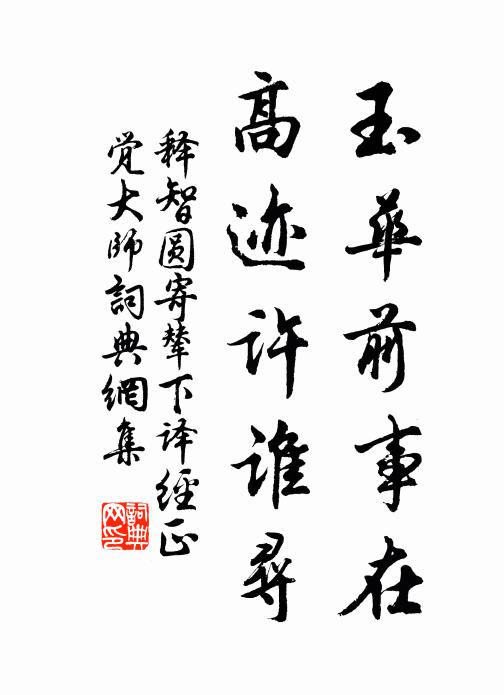 玉華前事在
高迹許誰尋
释智圆寄辇下译經正
觉大师詞典網集
詞典
网印